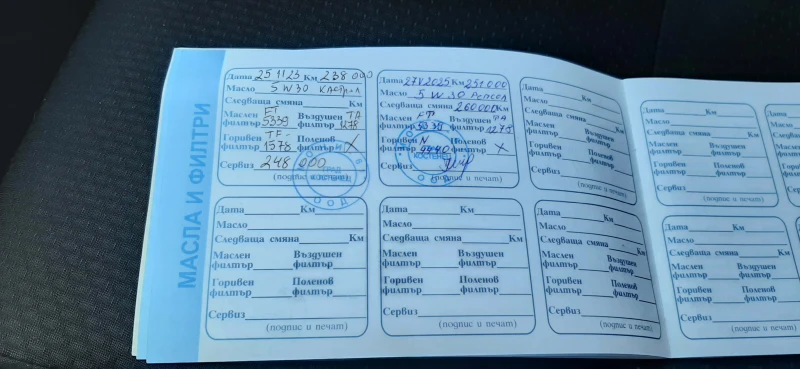 МАСЛА И ФИЛТРИ
Дата 25 11 23 Км 238 000
Масло 5 W30 Кастрол
Следваща смяна Км
Маслен филтър FT 5339 Въздушен филтър TA 1278
Горивен филтър TF- 1578 Поленов филтър X
Сервиз 248 000
(подпис и печат)
КОСТЕНЕЦ
ООД
Дата 27 V 2025 Км 251000
Масло 5 W 30
Следваща смяна 260000 Км
Маслен филтър 5339 Въздушен филтър
Горивен филтър N Поленов филтър X
Сервиз
(подпис и печат)
КОСТЕНЕЦ
ООД
Дата Км
Масло
Следваща смяна Км
Маслен филтър Въздушен филтър
Горивен филтър Поленов филтър
Сервиз
(подпис и печат)
Дата Км
Масло
Следваща смяна Км
Маслен филтър Въздушен филтър
Горивен филтър Поленов филтър
Сервиз
(подпис и печат)
Дата Км
Масло
Следваща смяна Км
Маслен филтър Въздушен филтър
Горивен филтър Поленов филтър
Сервиз
(подпис и печат)
Дата Км
Масло
Следваща смяна Км
Маслен филтър Въздушен филтър
Горивен филтър Поленов филтър
Сервиз
(подпис и печат)
Дата Км
Масло
Следваща смяна Км
Маслен филтър Въздушен филтър
Горивен филтър Поленов филтър
Сервиз
(подпис и печат)
Дата Км
Масло
Следваща смяна Км
Маслен филтър Въздушен филтър
Горивен филтър Поленов филтър
Сервиз
(подпис и печат)